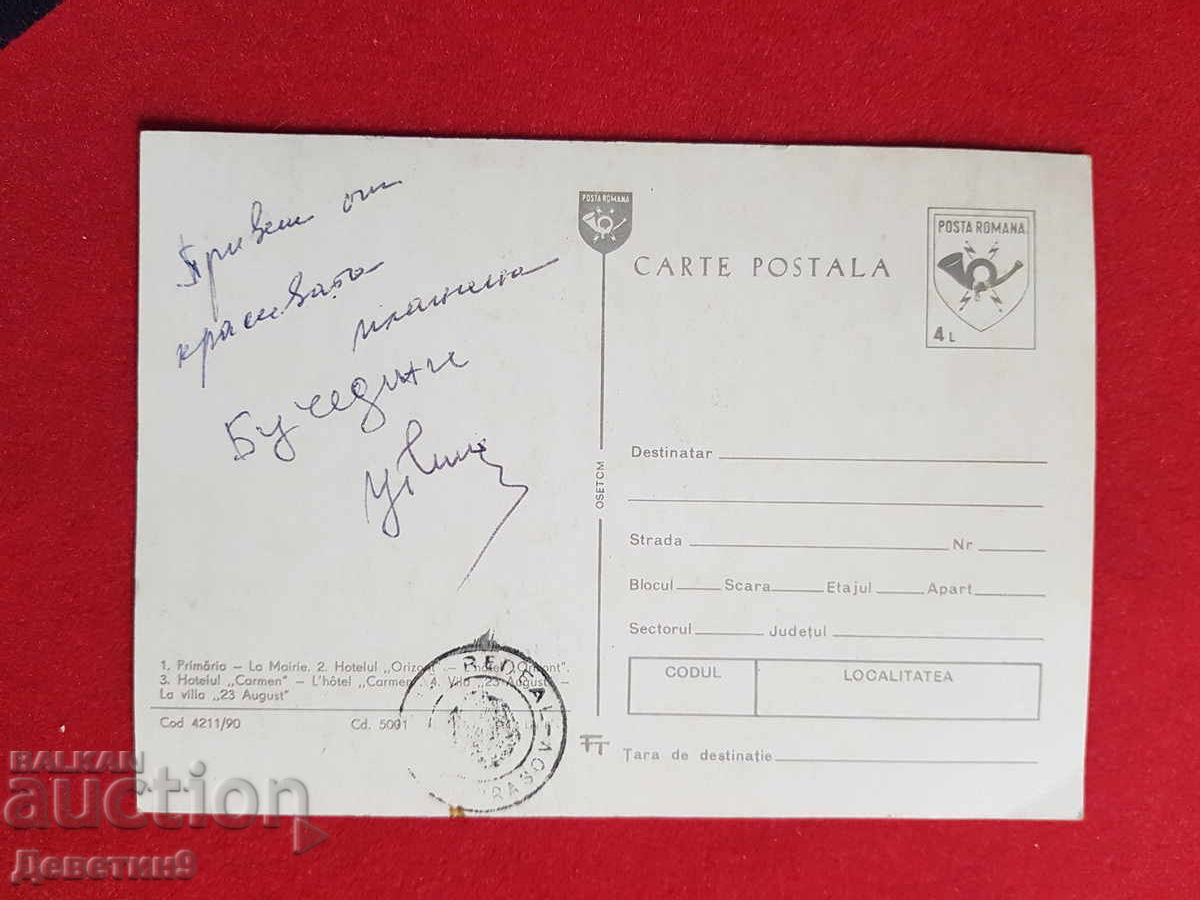 Привет от
красивата
планина
Бучеджи
POSTA ROMANA
CARTE POSTALA
POSTA ROMANA
4 L
OSETCM
Destinatar
Strada Nr
Blocul Scara Etajul Apart
Sectorul Județul
CODUL LOCALITATEA
Țara de destinație
1. Primăria – La Mairie. 2. Hotelul „Orizont". –
3. Hotelul „Carmen" – L'hôtel „Carmen". 4. Vila „23 August" –
La villa „23 August"
Cod 4211/90 Cd. 5001
PREDEAL-1
BRASOV
BALKAN
auction
Деветин9